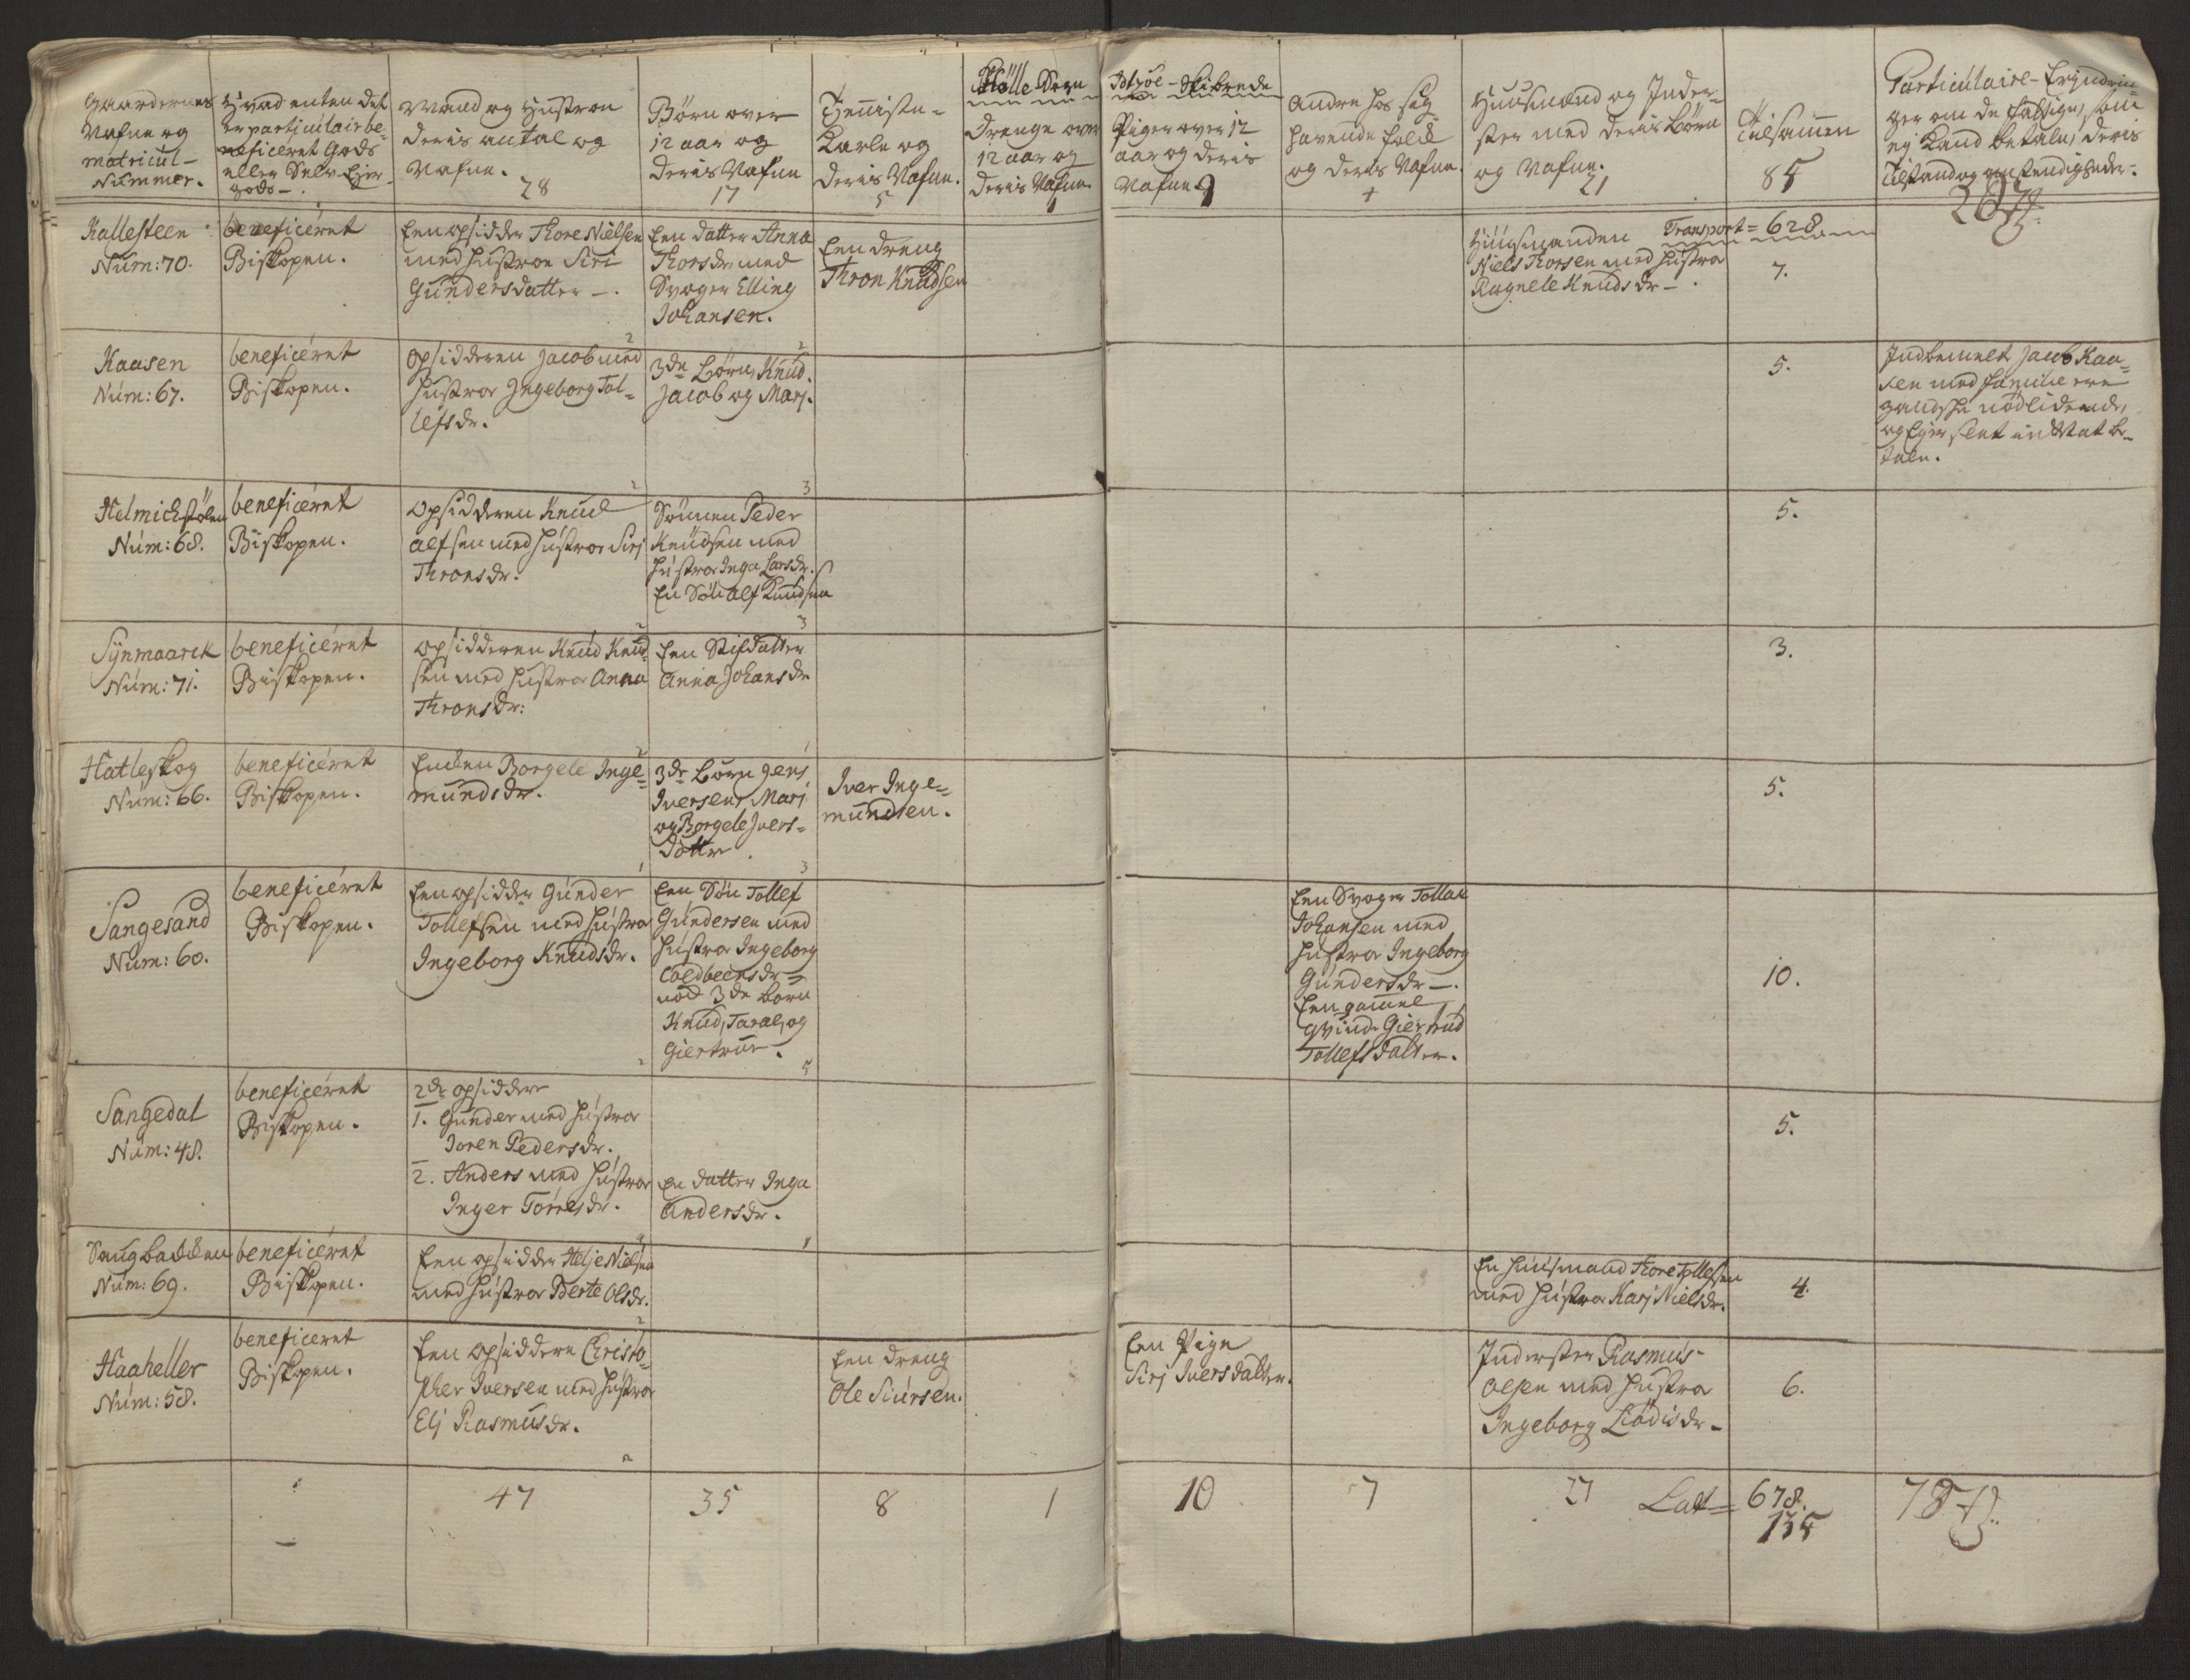 Gaardernes
Nafne og
matricul-
Nummer.
Hvad enten det
er particulair be-
neficeret Gods
eller Selv Ejer
gods -.
Mand og Hustroe
deris antal og
Nafne.
28
Børn over
12 aar og
deris Nafne
17
Tienniste-
Karle og
deris Nafne.
5
Drenge over
12 aar og
deris Nafne.
1
Piger over 12
aar og deris
Nafne
9
Andre hos sig
havende folk
og deris Nafne.
4
Huusmænd og Inder-
ster med deris Børn
og Nafne.
21
Tilsammen
85
Particulaire-Erindrin-
ger om de fattige, som
ej kand betale, deris
Tilstand og omstendigheder.
Kallesteen
Num: 70.
beneficéret
Biskopen.
Een opsidder Thore Nielsen
med hustroe Siri
Gundersdatter -.
2
Een datter Anna
Thorsdr med
Svoger Elling
Johansen.
2
Een dreng
Thron Knudsen
Transport = 628
Huusmanden
Niels Thorsen med hustro
Ragnele Knudsdr -.
7.
Kaasen
Num: 67.
beneficéret
Biskopen.
Opsidderen Jacob med
hustroe Ingeborg Tol-
lefsdr.
2
3de Børn, Knud,
Jacob og Marj.
3
5.
Indbemelt Jacob Kaa-
sen med familie ere
gandske nødlidende,
og Ejer slet indtet at be-
tale.
Helmichstølen
Num: 68.
beneficéret
Biskopen.
Opsidderen Knud
Alfsen med hustroe Sirj
Thronsdr.
2
Sønnen Peder
Knudsen med
hustroe Inga Larsdr.
En Søn Alf Knudsen
3
5.
Synmaarck
Num: 71.
beneficéret
Biskopen.
Opsidderen Knud Knud-
sen med hustroe Anna
Thronsdr:
2
Een Stifdatter
Anna Johansdr
1
3.
Hatleskog
Num: 66.
beneficéret
Biskopen.
Encken Borgele Inge-
mundsdr.
1
3de Børn Jens
Iversen, Marj
og Borgele Ivers-
dotter.
3
Iver Inge-
mundsen.
5.
Sangesand
Num: 60.
beneficéret
Biskopen.
Een opsidder Gunder
Tollefsen med hustroe
Ingeborg Knudsdr.
2
Een Søn Tollef
Gundersen med
hustroe Ingeborg
3de Børn
Knud, Taral, og
Giertrue.
5
Een Svoger Tollak
Johansen med
hustroe Ingeborg
Gundersdr -.
Een gammel
qvinde Giertrud
Tollefsdatter.
10.
Sangedal
Num: 48.
beneficéret
Biskopen.
2de opsidder
1. Gunder med hustroe
Joren Pedersdr.
2. Anders med hustroe
Inger Torresdr.
En datter Inga
Andersdr.
1
5.
Saugbakken
Num: 69.
beneficéret
Biskopen.
Een opsidder Helje Nielsen
med hustroe Berte Olsdr.
2
En huusmand Thore Tollefsen
med hustroe Karj Nielsdr.
4.
Haaheller
Num: 58.
beneficeret
Biskopen.
Een opsiddere Christo-
pher Iversen med hustroe
Elj Rasmusdr.
2
Een dreng
Ole Siursen.
Een Pige
Sirj Iversdatter.
Inderster Rasmus
Olsen med hustroe
Ingeborg
6.
47
35
8
1
10
7
27
Lat = 678.
135